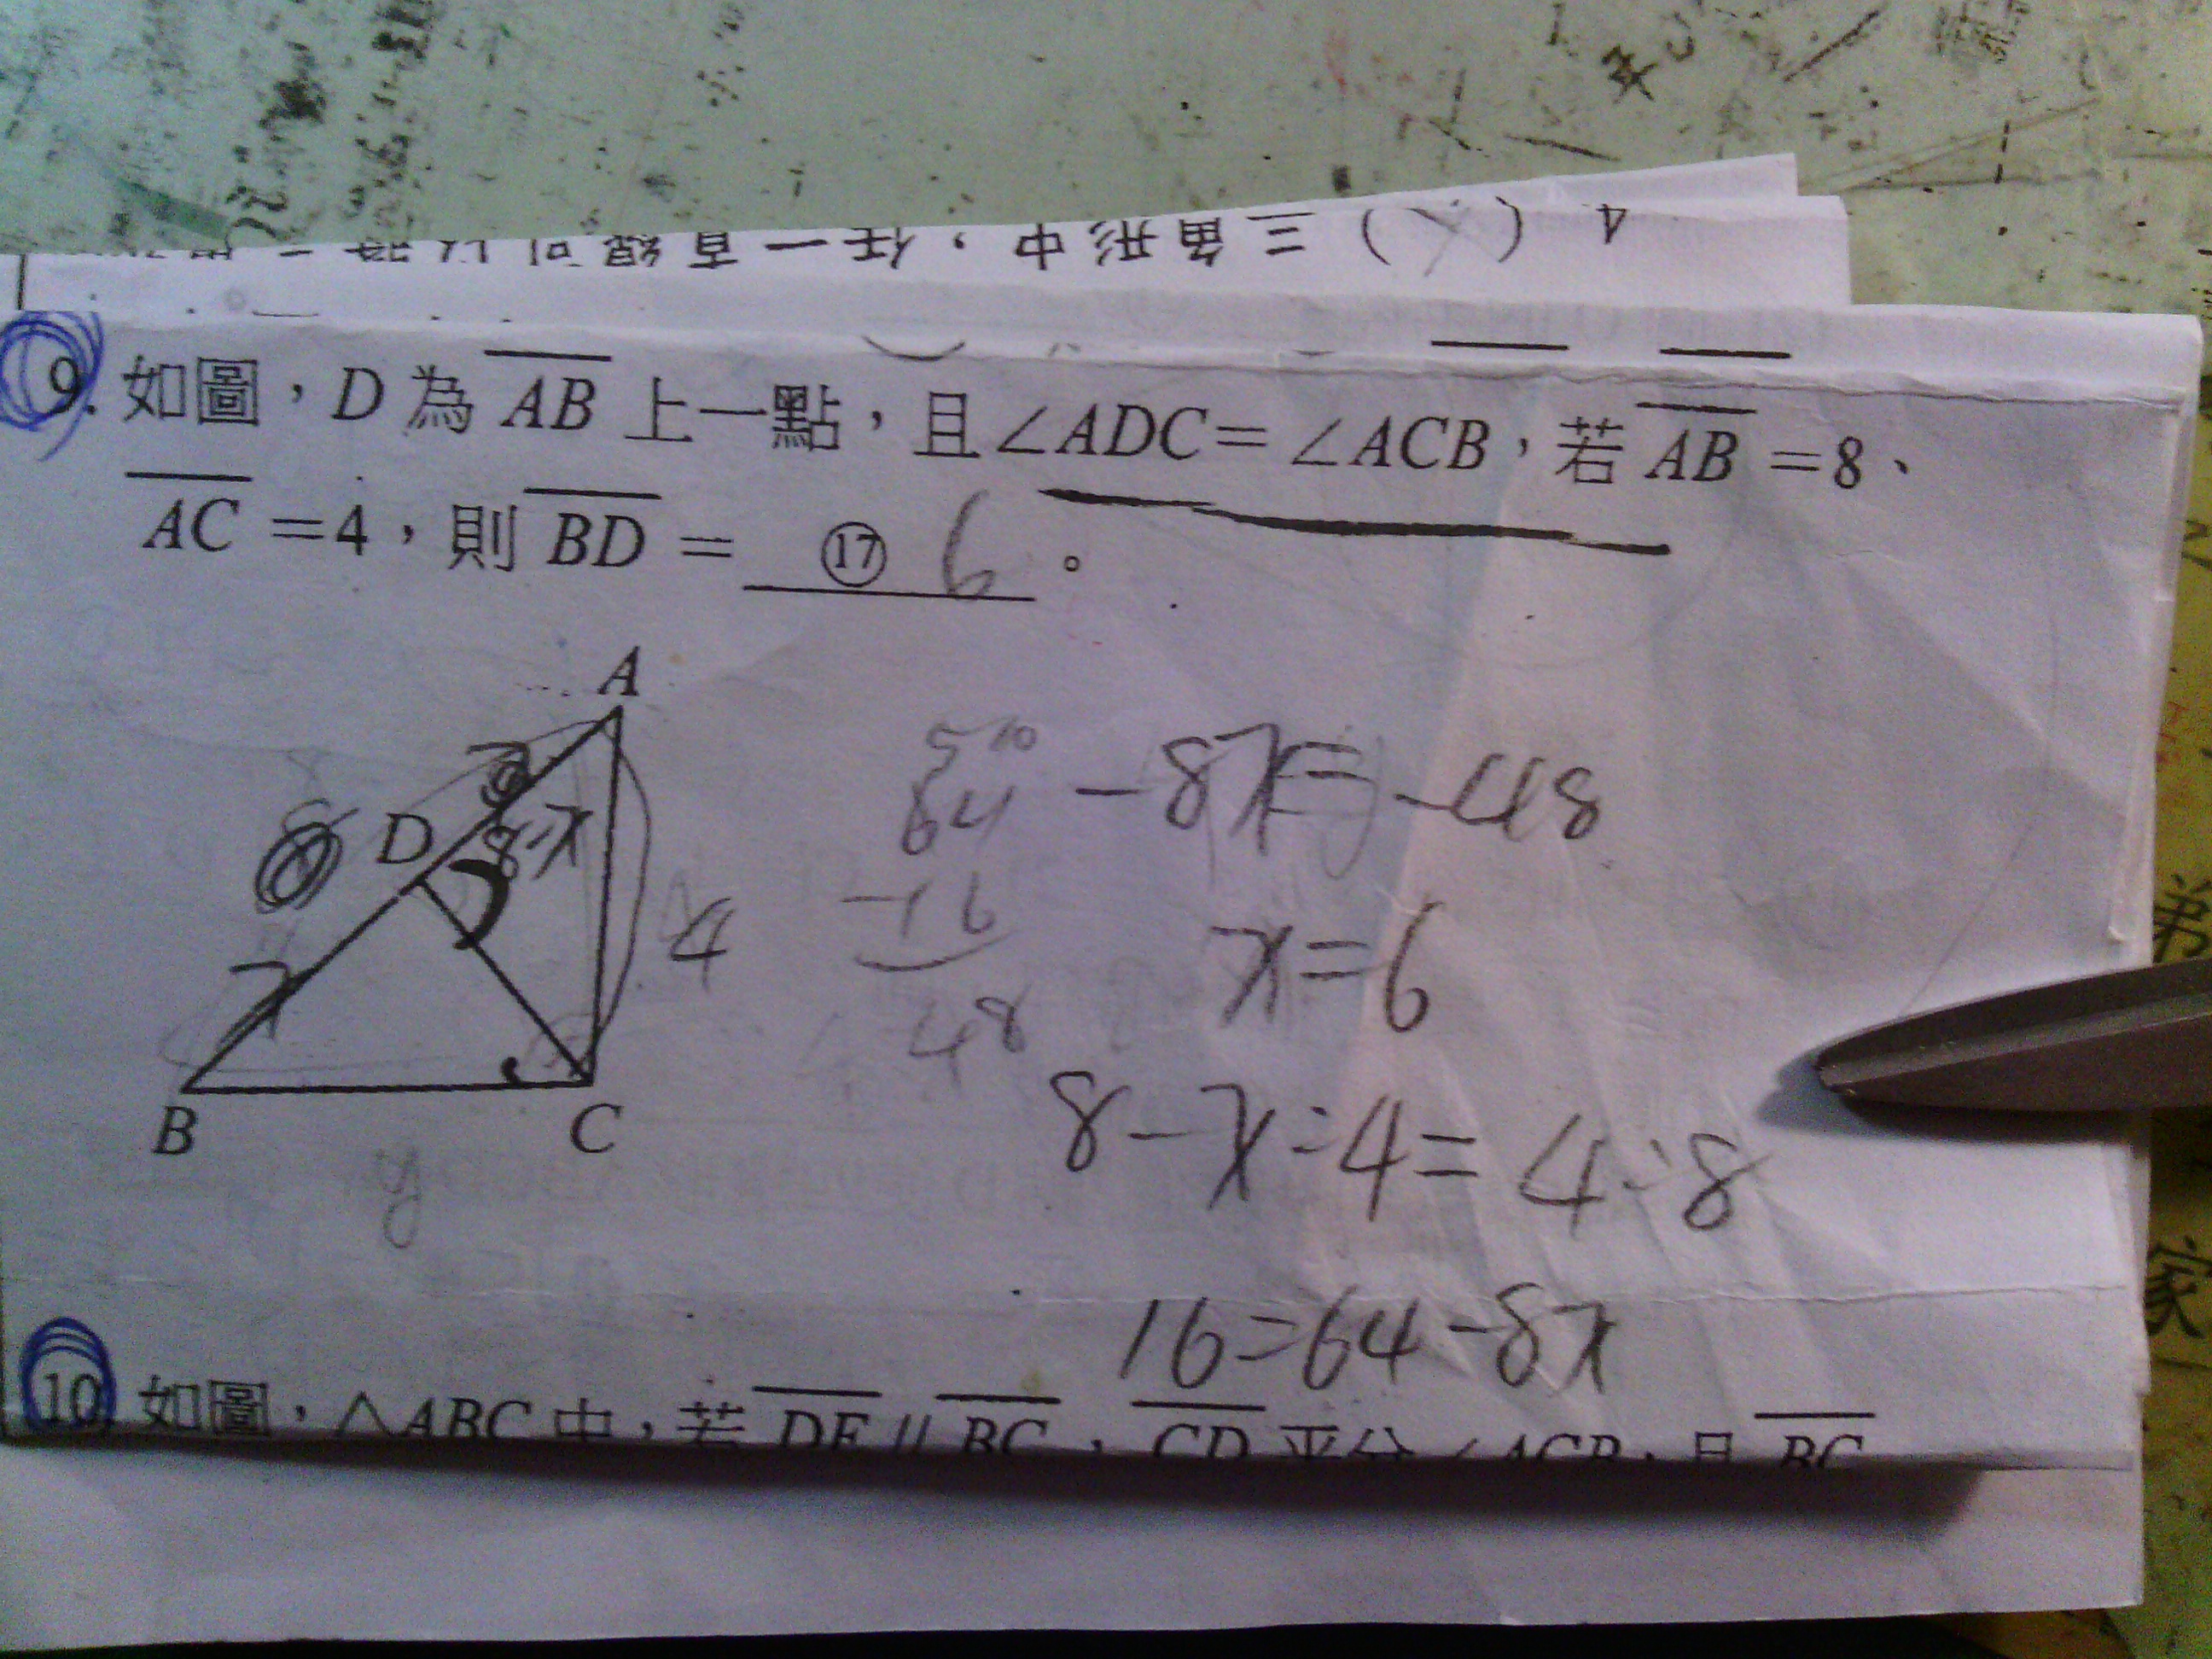 4. ( ) 三角形中，任一直線可以將
9. 如圖，D 為 AB 上一點，且∠ADC=∠ACB，若 AB =8、
AC =4，則 BD = ⑰ 6 。
A
8
D
8-x
4
B
C
y
64
-16
48
-8x=-48
x=6
8-x:4=4:8
16=64-8x
10. 如圖，△ABC 中，若 DE // BC ， CD 平分∠ACB，且 BC